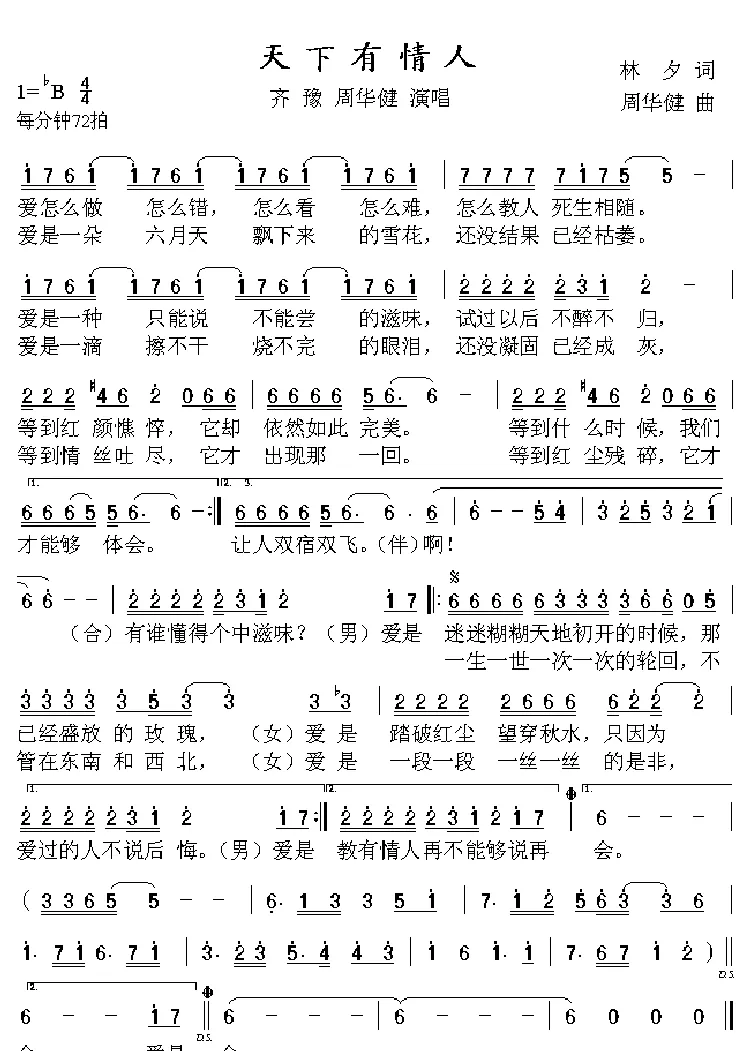 天下有情人
林 夕 词
1=♭B 4/4
齐 豫 周华健 演唱
周华健 曲
每分钟72拍
1 7 6 1 1 7 6 1 1 7 6 1 1 7 6 1 | 7 7 7 7 7 1 7 5 5 - |
爱怎么做 怎么错，怎么看 怎么难，怎么教人 死生相随。
爱是一朵 六月天 飘下来 的雪花，还没结果 已经枯萎。
1 7 6 1 1 7 6 1 1 7 6 1 1 7 6 1 | 2 2 2 2 2 3 1 2 - |
爱是一种 只能说 不能尝 的滋味，试过以后 不醉不 归，
爱是一滴 擦不干 烧不完 的眼泪，还没凝固 已经成 灰，
2 2 2 #4 6 2 0 6 6 | 6 6 6 6 5 6. 6 - | 2 2 2 #4 6 2 0 6 6 |
等到红 颜憔 悴，它却 依然如此 完美。 等到什 么时 候，我们
等到情 丝吐 尽，它才 出现那 一回。 等到红 尘残 碎，它才
1. 2. 3.
6 6 6 5 5 6. 6 - :| 6 6 6 6 5 6. 6 6 | 6 - - 5 4 | 3 2 5 3 2 1 |
才能够 体会。 让人双宿双飞。（伴）啊！
6 6 - - | 2 2 2 2 2 3 1 2 1 7 |: 6 6 6 6 6 3 3 3 3 6 6 0 5 |
（合）有谁懂得个中滋味？（男）爱是 迷迷糊糊天地初开的时候，那
一生一世一次一次的轮回，不
3 3 3 3 3 5 3 3 3 ♭3 | 2 2 2 2 2 6 6 6 6 2 2 2 |
已经盛放 的 玫 瑰，（女）爱 是 踏破红尘 望穿秋水，只因为
管在东南 和 西 北，（女）爱 是 一段一段 一丝一丝 的是非，
1. 2. 1.
2 2 2 2 2 3 1 2 1 7 :| 2 2 2 2 2 3 1 2 1 7 | 6 - - - |
爱过的人不说后 悔。（男）爱是 教有情人再不能够说再 会。
( 3 3 6 5 5 5 - - | 6. 1 3 3 5 1 | 7. 1 2 5 6 3 3 6 |
1. 7 1 6. 7 1 | 3. 2 3 5. 4 4 3 | 1 6 1. 1 | 7. 6 7 1 2 ) ||
D.S.
2.
6 - - 1 7 || 6 - - - | 6 - - - | 6 0 0 0 ||
D.S.
会 爱是 会